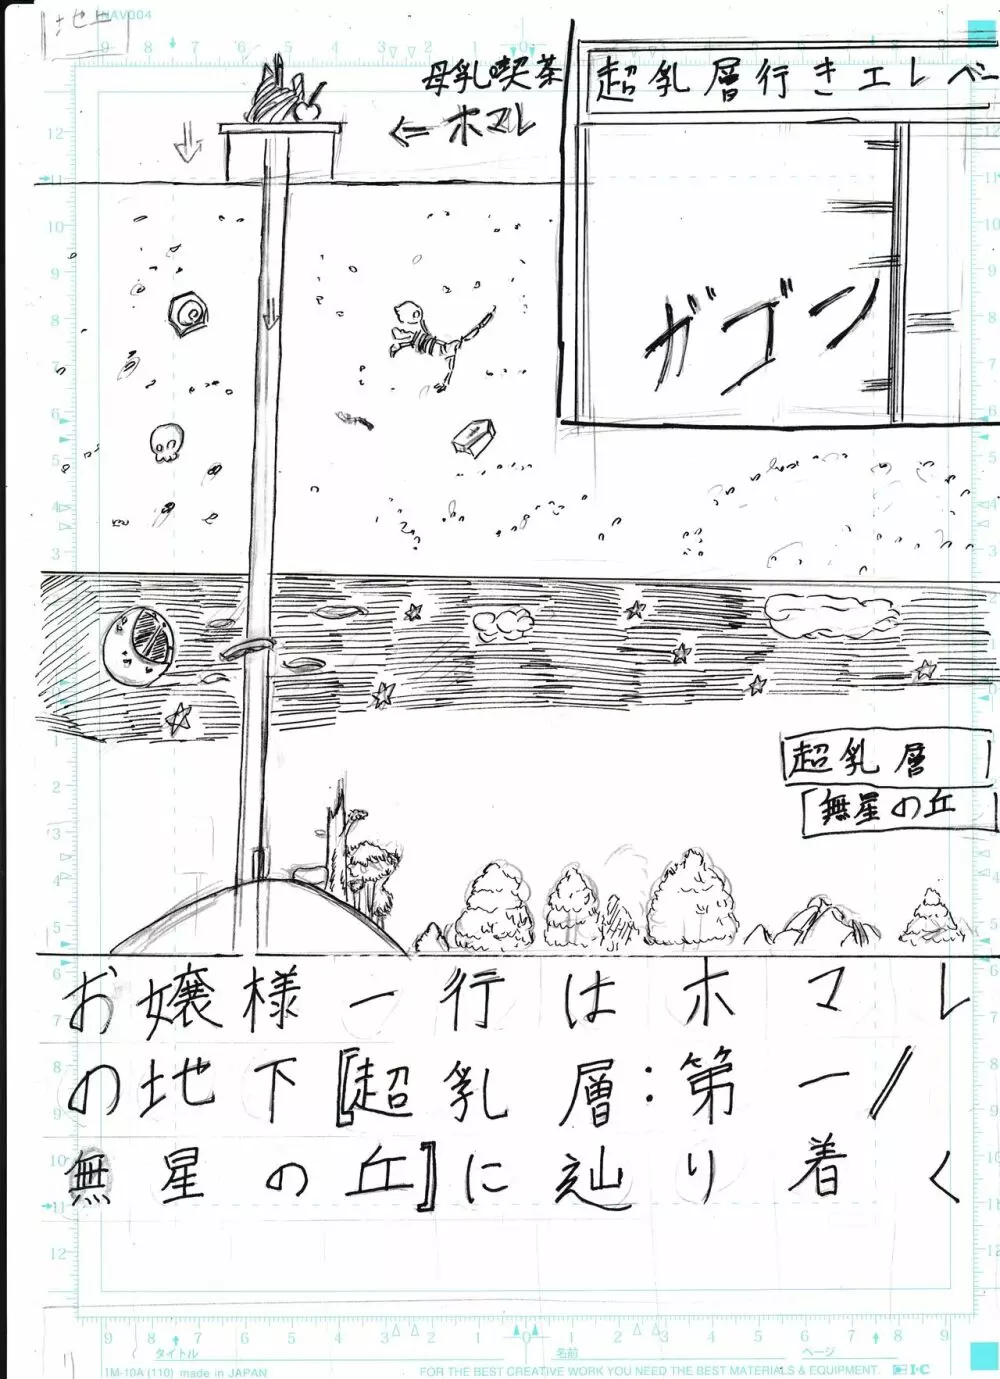 地上
NAV004
母乳喫茶
⇐ホマレ
超乳層行きエレベー
ガゴン
超乳層
「無星の丘
お嬢様一行はホマレ
の地下『超乳層:第一/
無星の丘』に辿り着く
タイトル
名前
ページ
IM-10A (110) made in JAPAN
FOR THE BEST CREATIVE WORK YOU NEED THE BEST MATERIALS & EQUIPMENT.
I·C